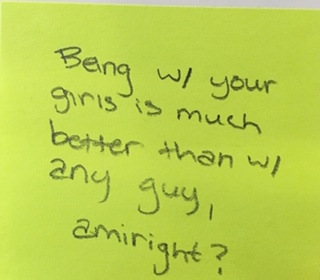 Being w/ your
girls is much
better than w/
any guy,
amiright?